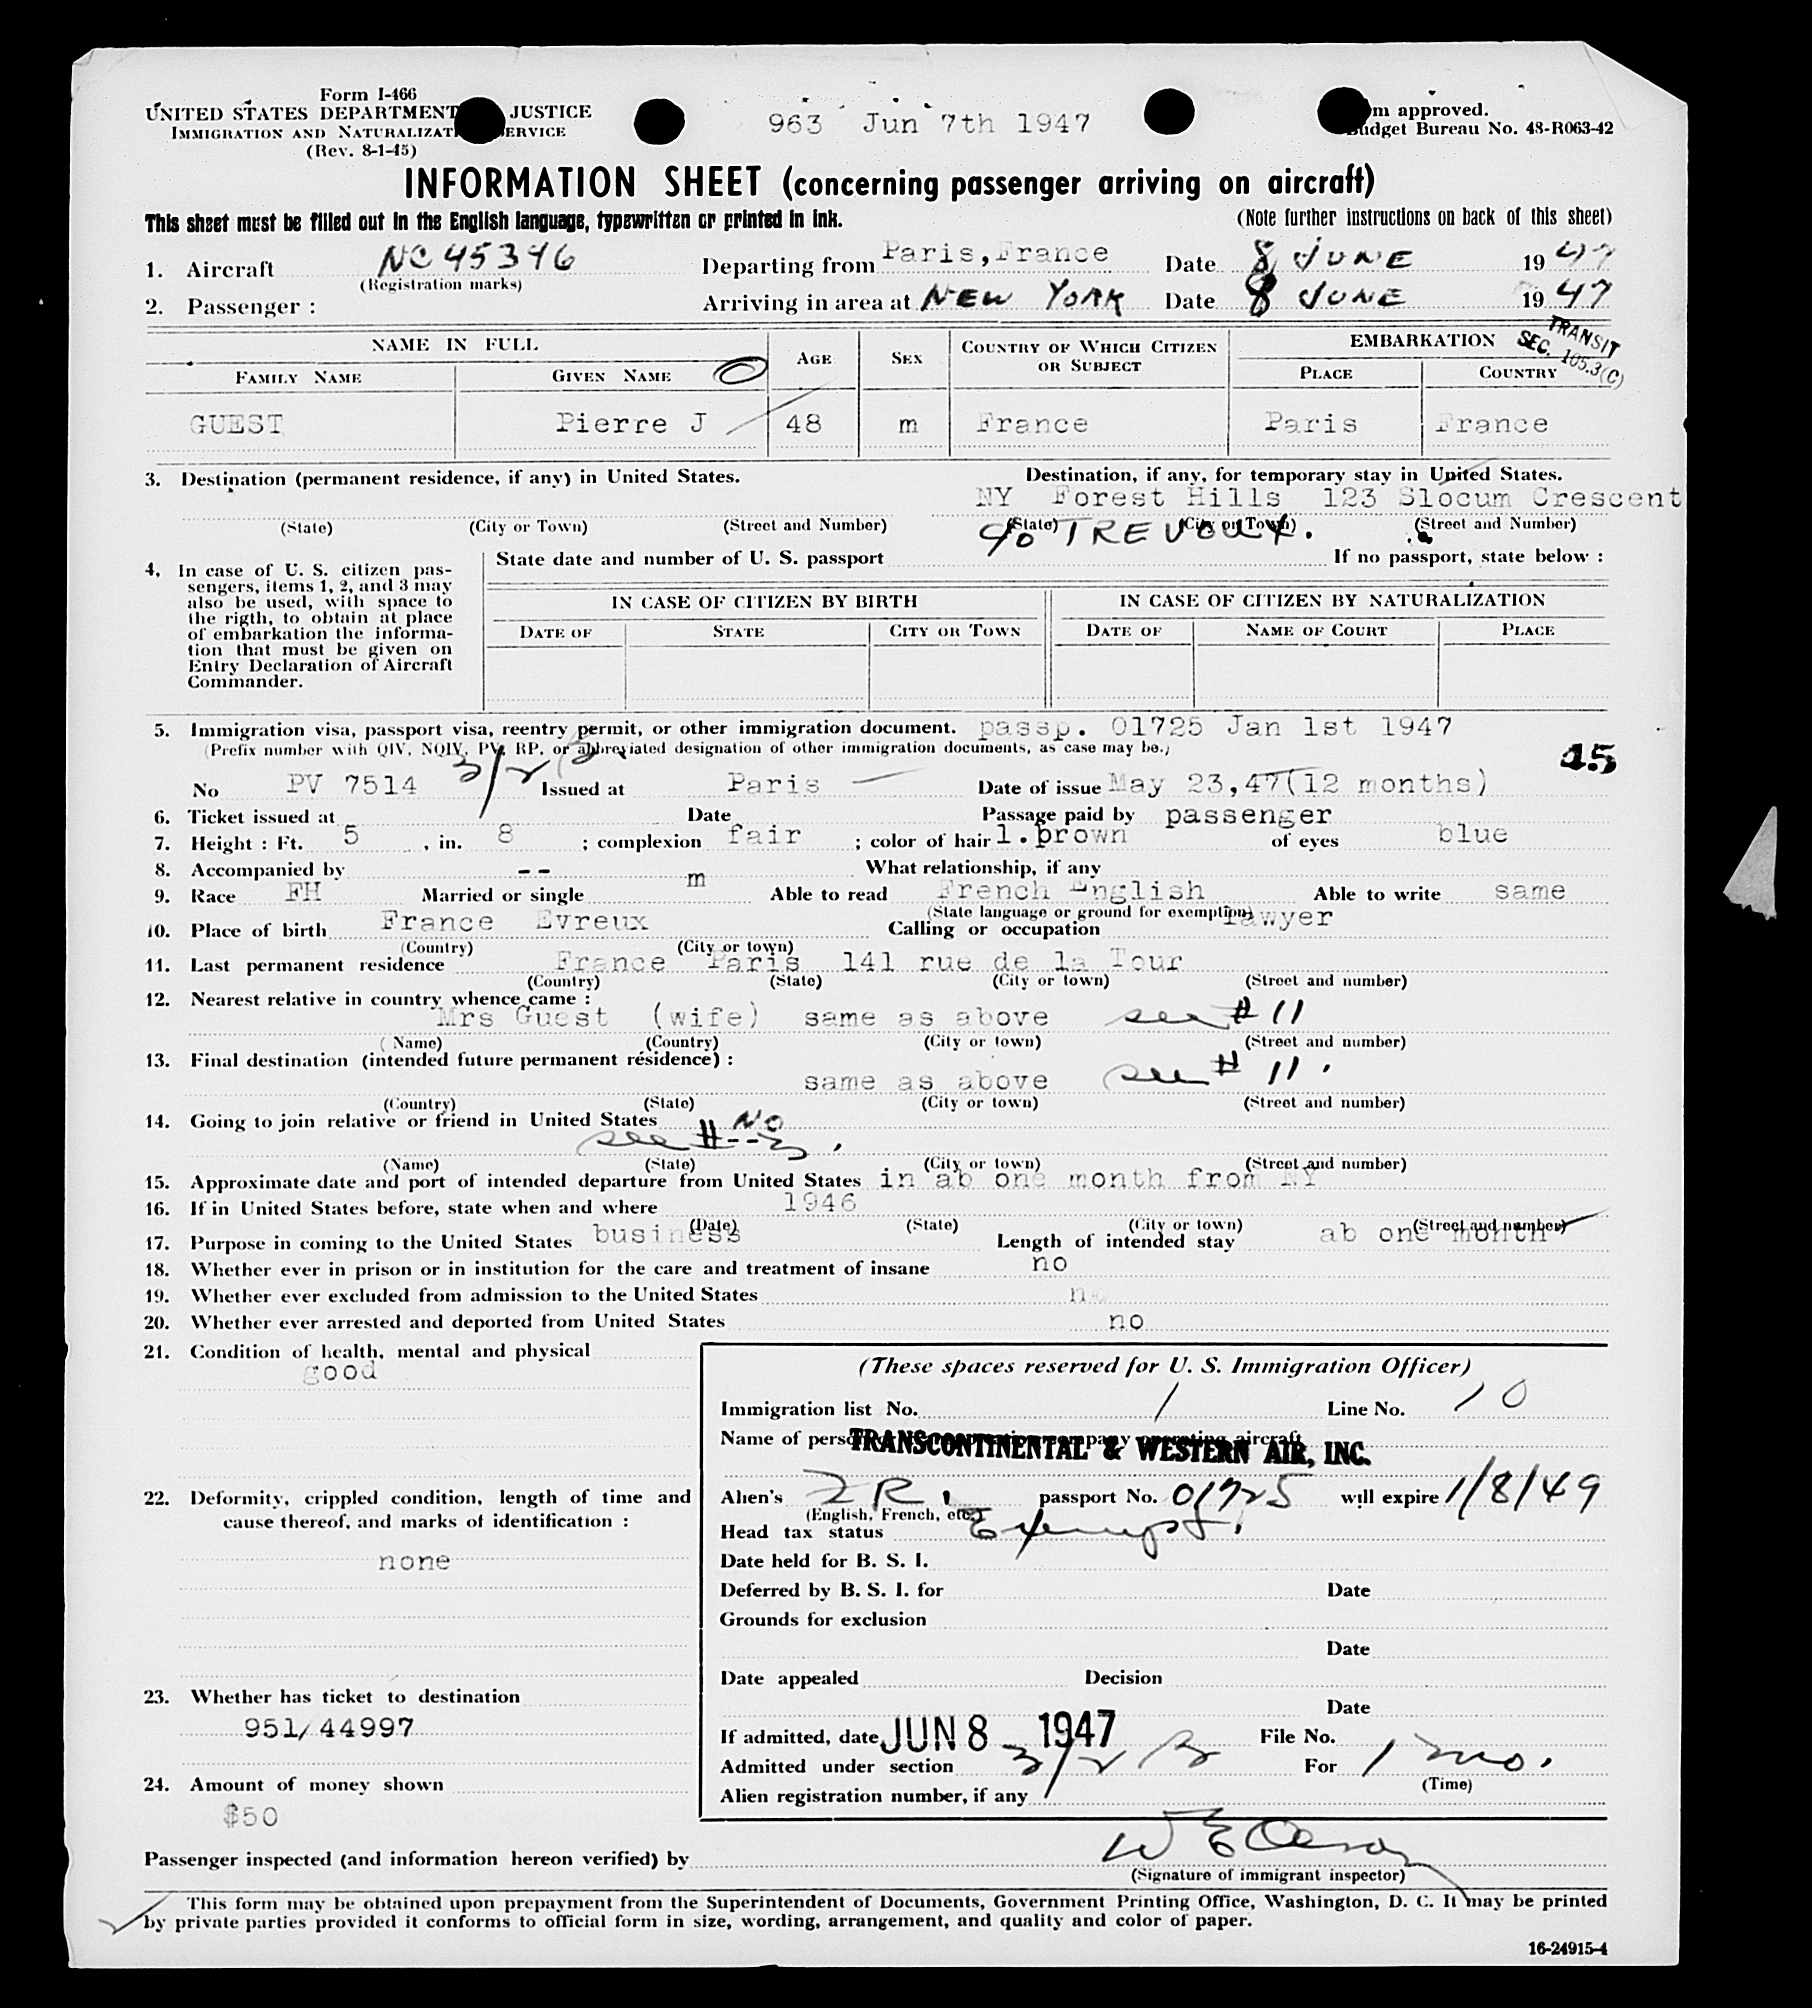 Form I-466
UNITED STATES DEPARTMENT JUSTICE
IMMIGRATION AND NATURALIZAT ERVICE
(Rev. 8-1-45)
963 Jun 7th 1947
m approved.
Budget Bureau No. 43-R063-42
INFORMATION SHEET (concerning passenger arriving on aircraft)
This sheet must be filled out in the English language, typewritten or printed in ink.
(Note further instructions on back of this sheet)
1. Aircraft NC 45346 Departing from Paris, France Date 8 JUNE 1947
(Registration marks)
2. Passenger : Arriving in area at NEW YORK Date 8 JUNE 1947
TRANSIT
SEC. 105.3(C)
NAME IN FULL AGE SEX COUNTRY OF WHICH CITIZEN OR SUBJECT EMBARKATION
FAMILY NAME GIVEN NAME PLACE COUNTRY
GUEST Pierre J 48 m France Paris France
3. Destination (permanent residence, if any) in United States. Destination, if any, for temporary stay in United States.
NY Forest Hills 123 Slocum Crescent
(State) (City or Town) (Street and Number) (State) (City or Town) (Street and Number)
c/o TREVOUX.
4. In case of U. S. citizen pas-
sengers, items 1, 2, and 3 may
also be used, with space to
the rigth, to obtain at place
of embarkation the informa-
tion that must be given on
Entry Declaration of Aircraft
Commander.
State date and number of U. S. passport If no passport, state below :
IN CASE OF CITIZEN BY BIRTH IN CASE OF CITIZEN BY NATURALIZATION
DATE OF STATE CITY OR TOWN DATE OF NAME OF COURT PLACE
5. Immigration visa, passport visa, reentry permit, or other immigration document. passp. 01725 Jan 1st 1947
(Prefix number with QIV, NQIV, PV, RP, or abbreviated designation of other immigration documents, as case may be.)
3/2
15
No PV 7514 Issued at Paris Date of issue May 23,47(12 months)
6. Ticket issued at Date Passage paid by passenger
7. Height : Ft. 5 , in. 8 ; complexion fair ; color of hair l.brown of eyes blue
8. Accompanied by -- What relationship, if any
9. Race FH Married or single m Able to read French English Able to write same
(State language or ground for exemption)
10. Place of birth France Evreux Calling or occupation lawyer
(Country) (City or town)
11. Last permanent residence France Paris 141 rue de la Tour
(Country) (State) (City or town) (Street and number)
12. Nearest relative in country whence came :
Mrs Guest (wife) same as above see # 11
(Name) (Country) (City or town) (Street and number)
13. Final destination (intended future permanent résidence) :
same as above see # 11.
(Country) (State) (City or town) (Street and number)
14. Going to join relative or friend in United States NO
see # -- 3.
(Name) (State) (City or town) (Street and number)
15. Approximate date and port of intended departure from United States in ab one month from NY
16. If in United States before, state when and where 1946
(Date) (State) (City or town) (Street and number)
17. Purpose in coming to the United States business Length of intended stay ab one month
18. Whether ever in prison or in institution for the care and treatment of insane no
19. Whether ever excluded from admission to the United States no
20. Whether ever arrested and deported from United States no
21. Condition of health, mental and physical
good
22. Deformity, crippled condition, length of time and
cause thereof, and marks of identification :
none
23. Whether has ticket to destination
951/44997
24. Amount of money shown
$50
(These spaces reserved for U. S. Immigration Officer)
Immigration list No. 1 Line No. 10
Name of person company operating aircraft
TRANSCONTINENTAL & WESTERN AIR, INC.
Alien's passport No. 01725 will expire 1/8/49
(English, French, etc.)
Head tax status Exempt.
Date held for B. S. I.
Deferred by B. S. I. for Date
Grounds for exclusion
Date
Date appealed Decision
Date
If admitted, date JUN 8 1947 File No.
Admitted under section 3/2 B For 1 mo.
(Time)
Alien registration number, if any
Passenger inspected (and information hereon verified) by
(Signature of immigrant inspector)
This form may be obtained upon prepayment from the Superintendent of Documents, Government Printing Office, Washington, D. C. It may be printed
by private parties provided it conforms to official form in size, wording, arrangement, and quality and color of paper.
16-24915-4